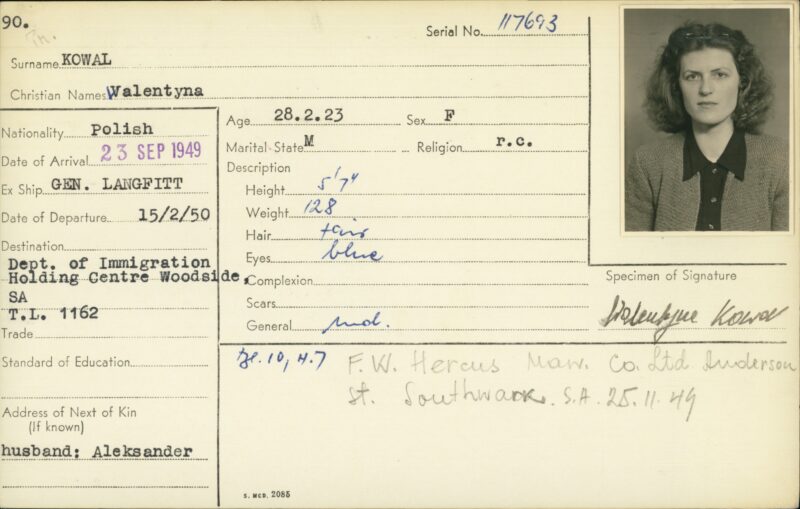 90.
Serial No. 117693
Surname KOWAL
Christian Names Walentyna
Nationality Polish
Date of Arrival 23 SEP 1949
Ex Ship GEN. LANGFITT
Date of Departure 15/2/50
Destination
Dept. of Immigration
Holding Centre Woodside,
SA
T.L. 1162
Trade
Standard of Education
Address of Next of Kin
(If known)
husband: Aleksander
Age 28.2.23 Sex F
Marital State M Religion r.c.
Description
Height 5'7"
Weight 128
Hair fair
Eyes blue
Complexion
Scars
General med.
Specimen of Signature
Walentyna Kowal
Bl. 10, H.7
F.W. Hercus Man. Co. Ltd Anderson
St. Southwark. S.A. 25.11.49
S. MCD. 2085